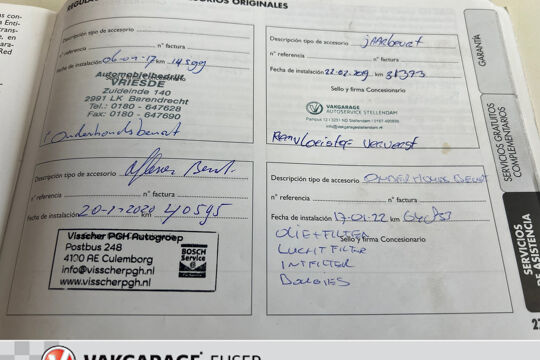 ORIGINALES
Descripción tipo de accesorio
n° referencia n° factura
Fecha de instalación 06-01-17 km 14599
Automobielbedrijf
VRIESDE
Zuideinde 140
2991 LK Barendrecht
Tel.: 0180 - 647628
Fax: 0180 - 647690
Onderhoudsbeurt
Descripción tipo de accesorio jaarbeurt
n° referencia n° factura
Fecha de instalación 22-02-2019 km 31373
Sello y firma Concesionario
VAKGARAGE
AUTOSERVICE STELLENDAM
Remvloeistof ververst
Descripción tipo de accesorio
n° referencia n° factura
Fecha de instalación 20-1-2020 km 40595
Visscher PGH Autogroep
Postbus 248
4100 AE Culemborg
info@visscherpgh.nl
www.visscherpgh.nl
BOSCH
Service
Descripción tipo de accesorio ONDERHOUDSBEURT
n° referencia n° factura
Fecha de instalación 17-01-22 km
Sello y firma Concesionario
OLIE+FILTER
LUCHTFILTER
INTFILTER
BOUGIES
GARANTÍA
SERVICIOS GRATUITOS
COMPLEMENTARIOS
SERVICIOS
DE ASISTENCIA
VAKGARAGE